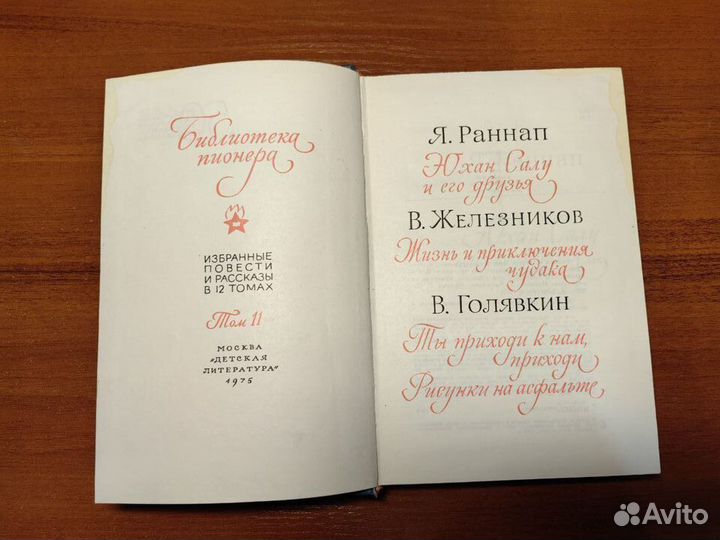 Библиотека
пионера
ИЗБРАННЫЕ
ПОВЕСТИ
И РАССКАЗЫ
В 12 ТОМАХ
Том 11
МОСКВА
„ДЕТСКАЯ
ЛИТЕРАТУРА“
1975
Я. Раннап
Юхан Салу
и его друзья
В. Железников
Жизнь и приключения
чудака
В. Голявкин
Ты приходи к нам,
приходи
Рисунки на асфальте
Avito